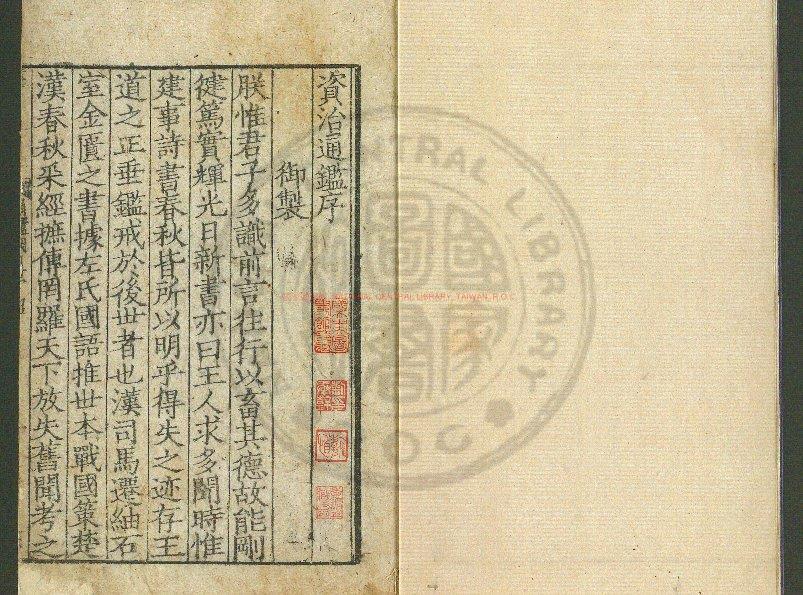 資治通鑑序
御製
朕惟君子多識前言往行以畜其德故能剛
健篤實輝光日新書亦曰王人求多聞時惟
建事詩書春秋皆所以明乎得失之迹存王
道之正垂鑑戒於後世者也漢司馬遷紬石
室金匱之書據左氏國語推世本戰國策楚
漢春秋采經摭傳罔羅天下放失舊聞考之
CENTRAL LIBRARY, TAIWAN, R.O.C.
CENTRAL LIBRARY
國家圖書